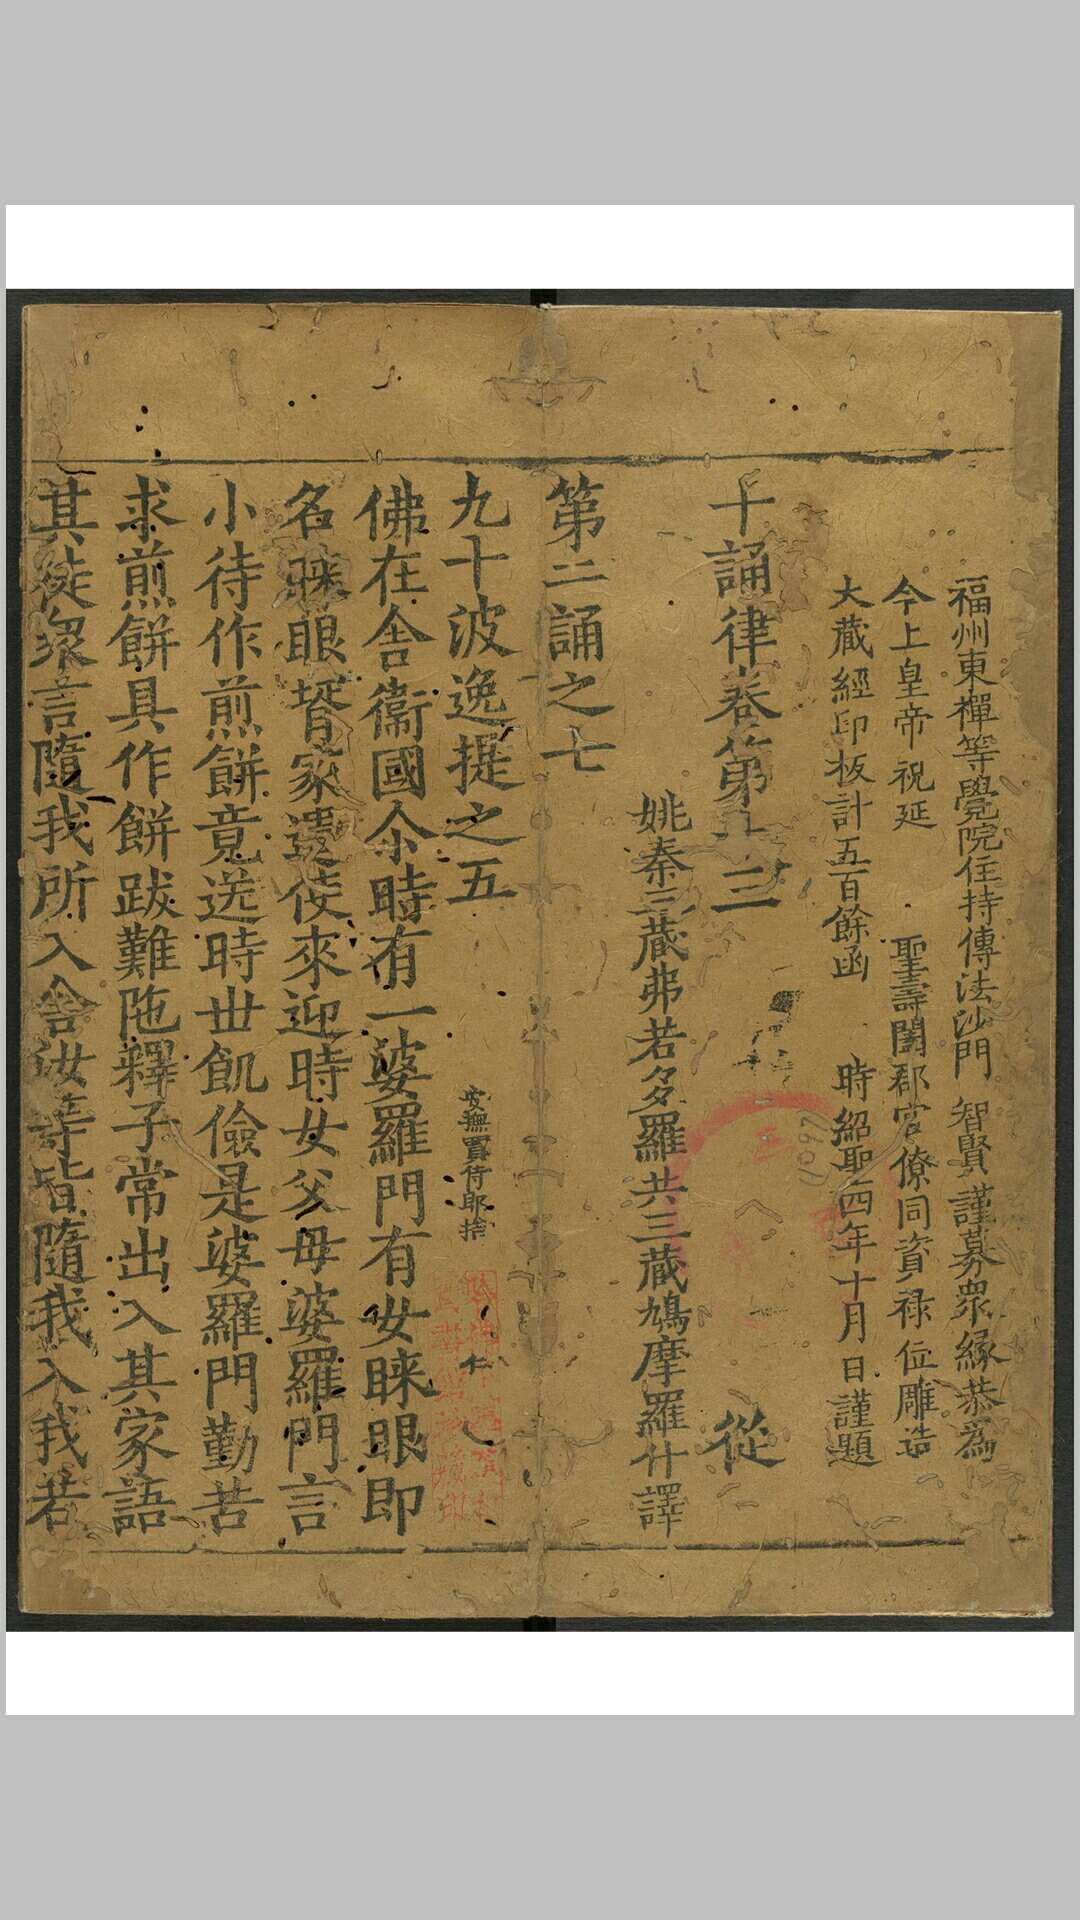 福州東禪等覺院住持傳法沙門 智賢 謹募衆緣恭爲
今上皇帝祝延 聖壽闔郡官僚同資祿位雕造
大藏經印板計五百餘函 時紹聖四年十月 日謹題
十誦律卷第十三 從
姚秦三藏弗若多羅共三藏鳩摩羅什譯
第二誦之七
九十波逸提之五
安撫賈侍郎捨
佛在舍衞國尒時有一婆羅門有女睞眼即
名睞眼壻家遣使來迎時女父母婆羅門言
小待作煎餅竟送時世飢儉是婆羅門勤苦
求煎餅具作餅跋難陁釋子常出入其家語
其徒衆言隨我所入舍汝等皆隨我入我若
1097